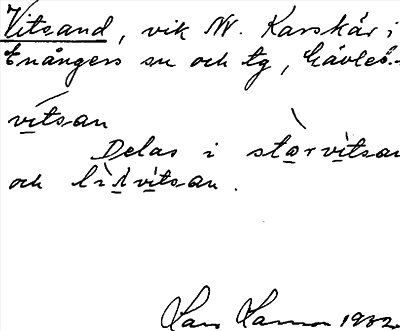 Vitsand, vik NV. Karskär i
Enångers sn och tg, Gävleb.
vítsan
Delas i stòrvìtsan
och lìlvìtsan.
1932